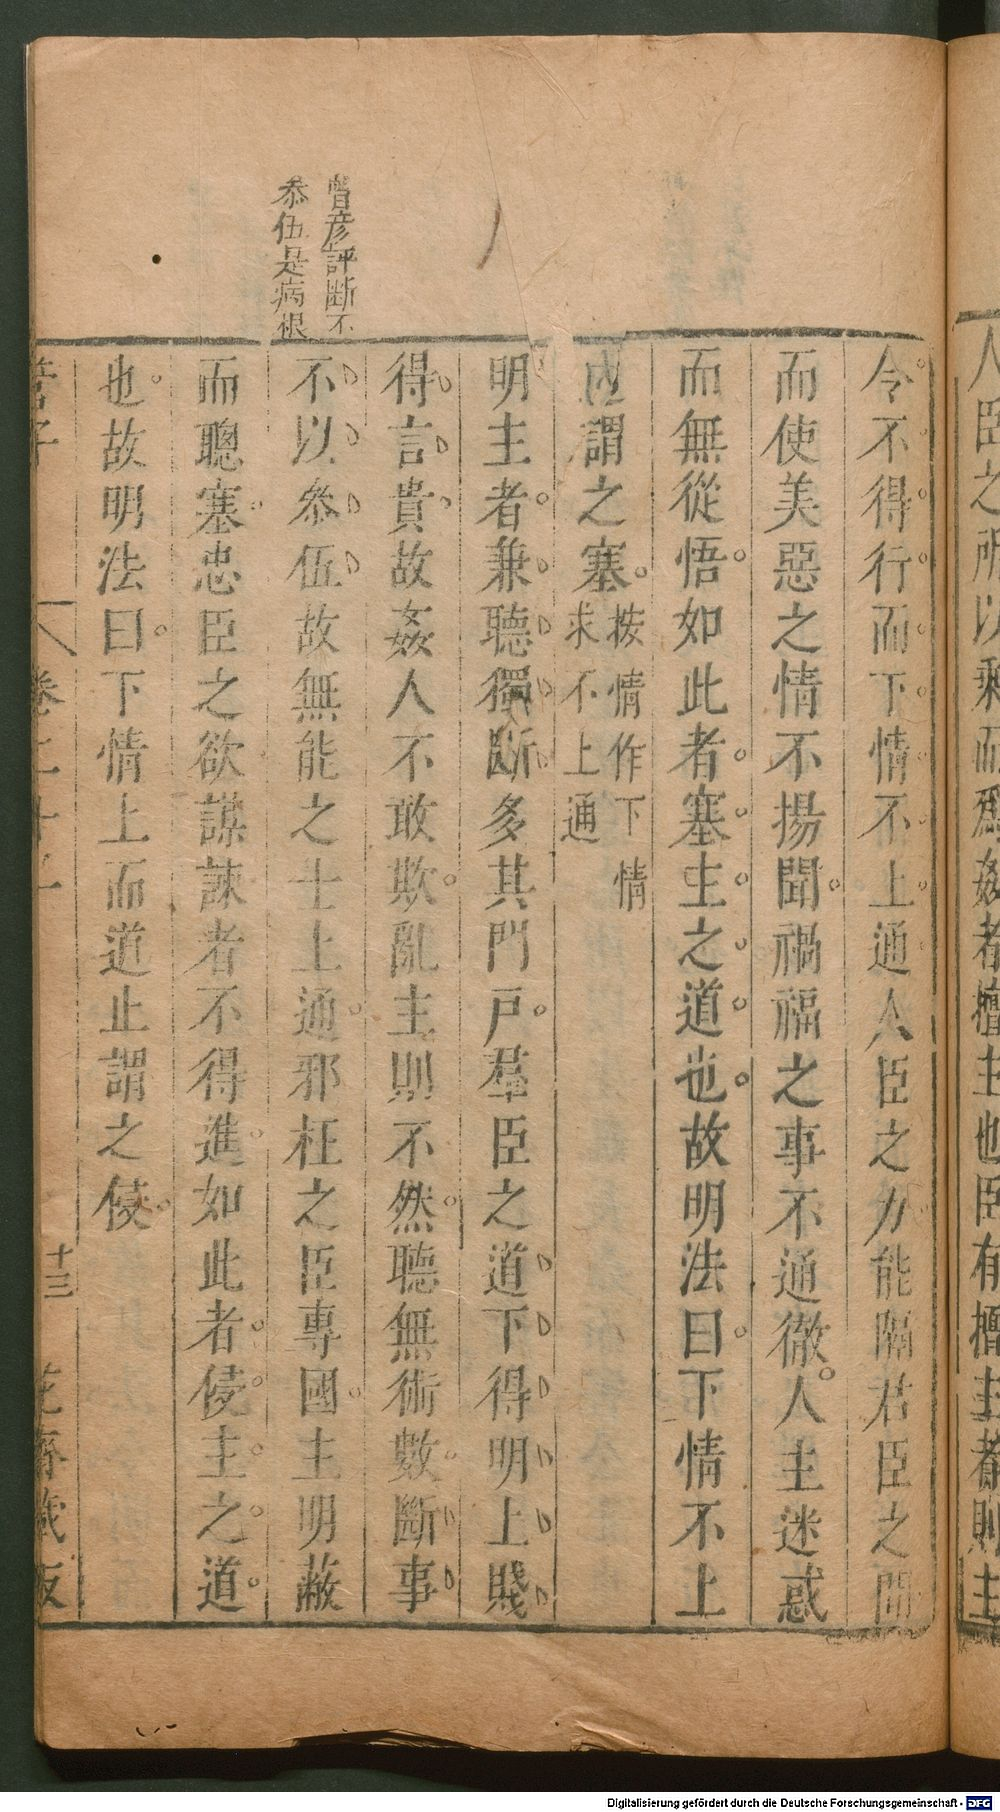 人臣之所以乘而爲姦者擅主也臣有擅主者則主
令不得行而下情不上通人臣之力能隔君臣之間
而使美惡之情不揚聞禍福之事不通徹人主迷惑
而無從悟如此者塞主之道也故明法曰下情不上
謂之塞按情作下情求不上通
明主者兼聽獨斷多其門戶羣臣之道下得明上賤
得言貴故姦人不敢欺亂主則不然聽無術數斷事
不以叅伍故無能之士上通邪枉之臣專國主明蔽
而聰塞忠臣之欲謀諫者不得進如此者侵主之道
也故明法曰下情上而道止謂之侵
彥評斷不
叅伍是病根
管子 卷二十一 十三 花齋藏板
Digitalisierung gefördert durch die Deutsche Forschungsgemeinschaft - DFG